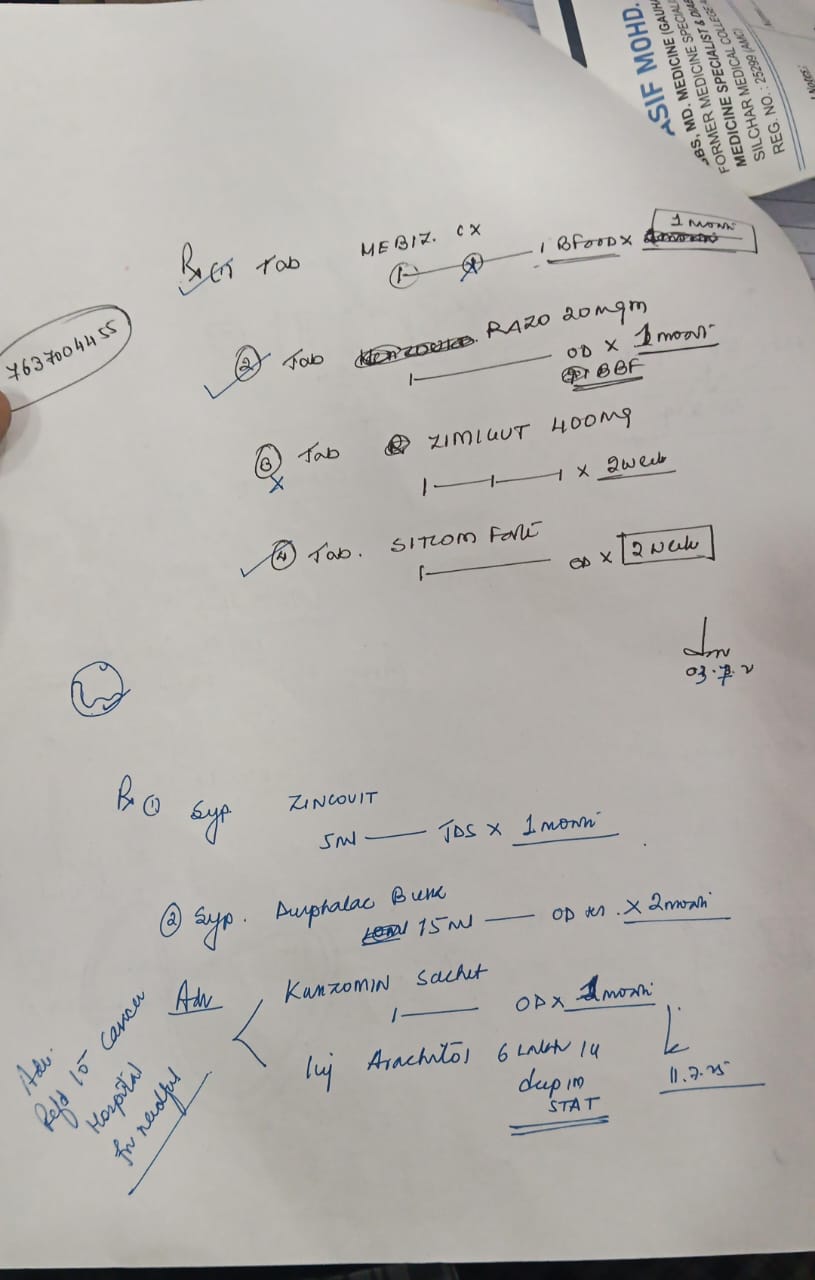 ASIF MOHD.
BBS, MD. MEDICINE (GAUHA
MEDICINE SPECIALI
FORMER MEDICINE SPECIALIST & DIAB
MEDICINE SPECIAL COLLEGE
SILCHAR MEDICAL (AMC)
REG. NO. : 25299
Notes:
7637004455
Rx (1) Tab MEBIZ. CX
1 BFOOD X 1 month
(2) Tab RAZO 20mgm
1 OD X 1 month
BBF
(3) Tab ZIMIGUT 400mg
X 2 week
(4) Tab. SITCOM Forte
OD X 2 week
03.7.2
Rx (1) Syp ZINCOVIT
5ml TDS X 1 month
(2) Syp. Duphalac Bulk
15ml OD X 2 month
Adv Kunzomin Sachet
1 OD X 1 month
Inj Arachitol 6 Lakh IU
deep IM
STAT
11.7.25
Adv.
Refd to Cancer
Hospital
for needful